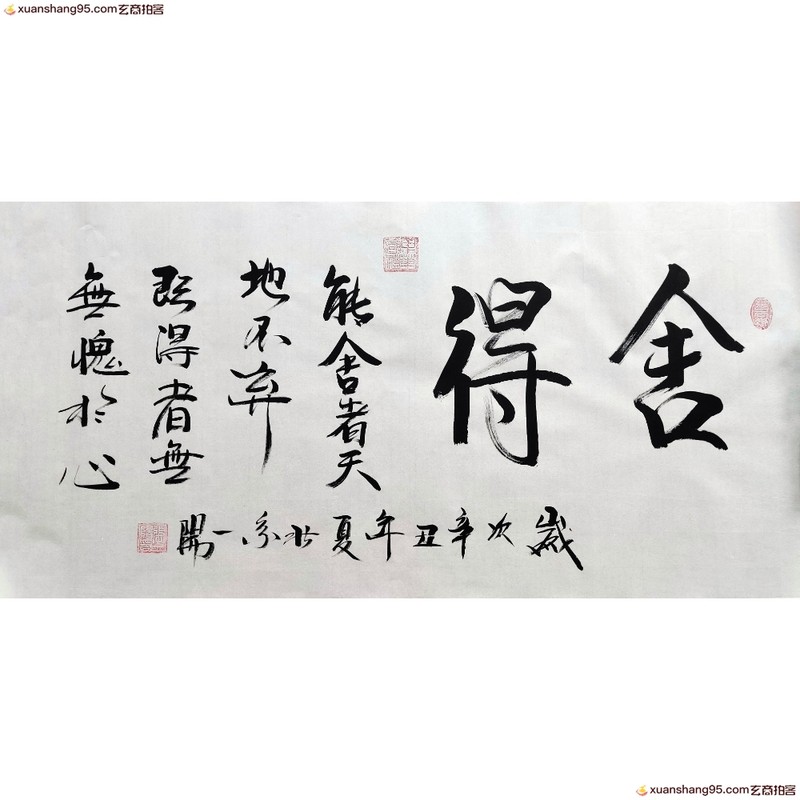 xuanshang95.com玄商拍客
舍得
能舍者天
地不弃
既得者無
無愧於心
歲次辛丑年夏 一開
xuanshang95.com玄商拍客